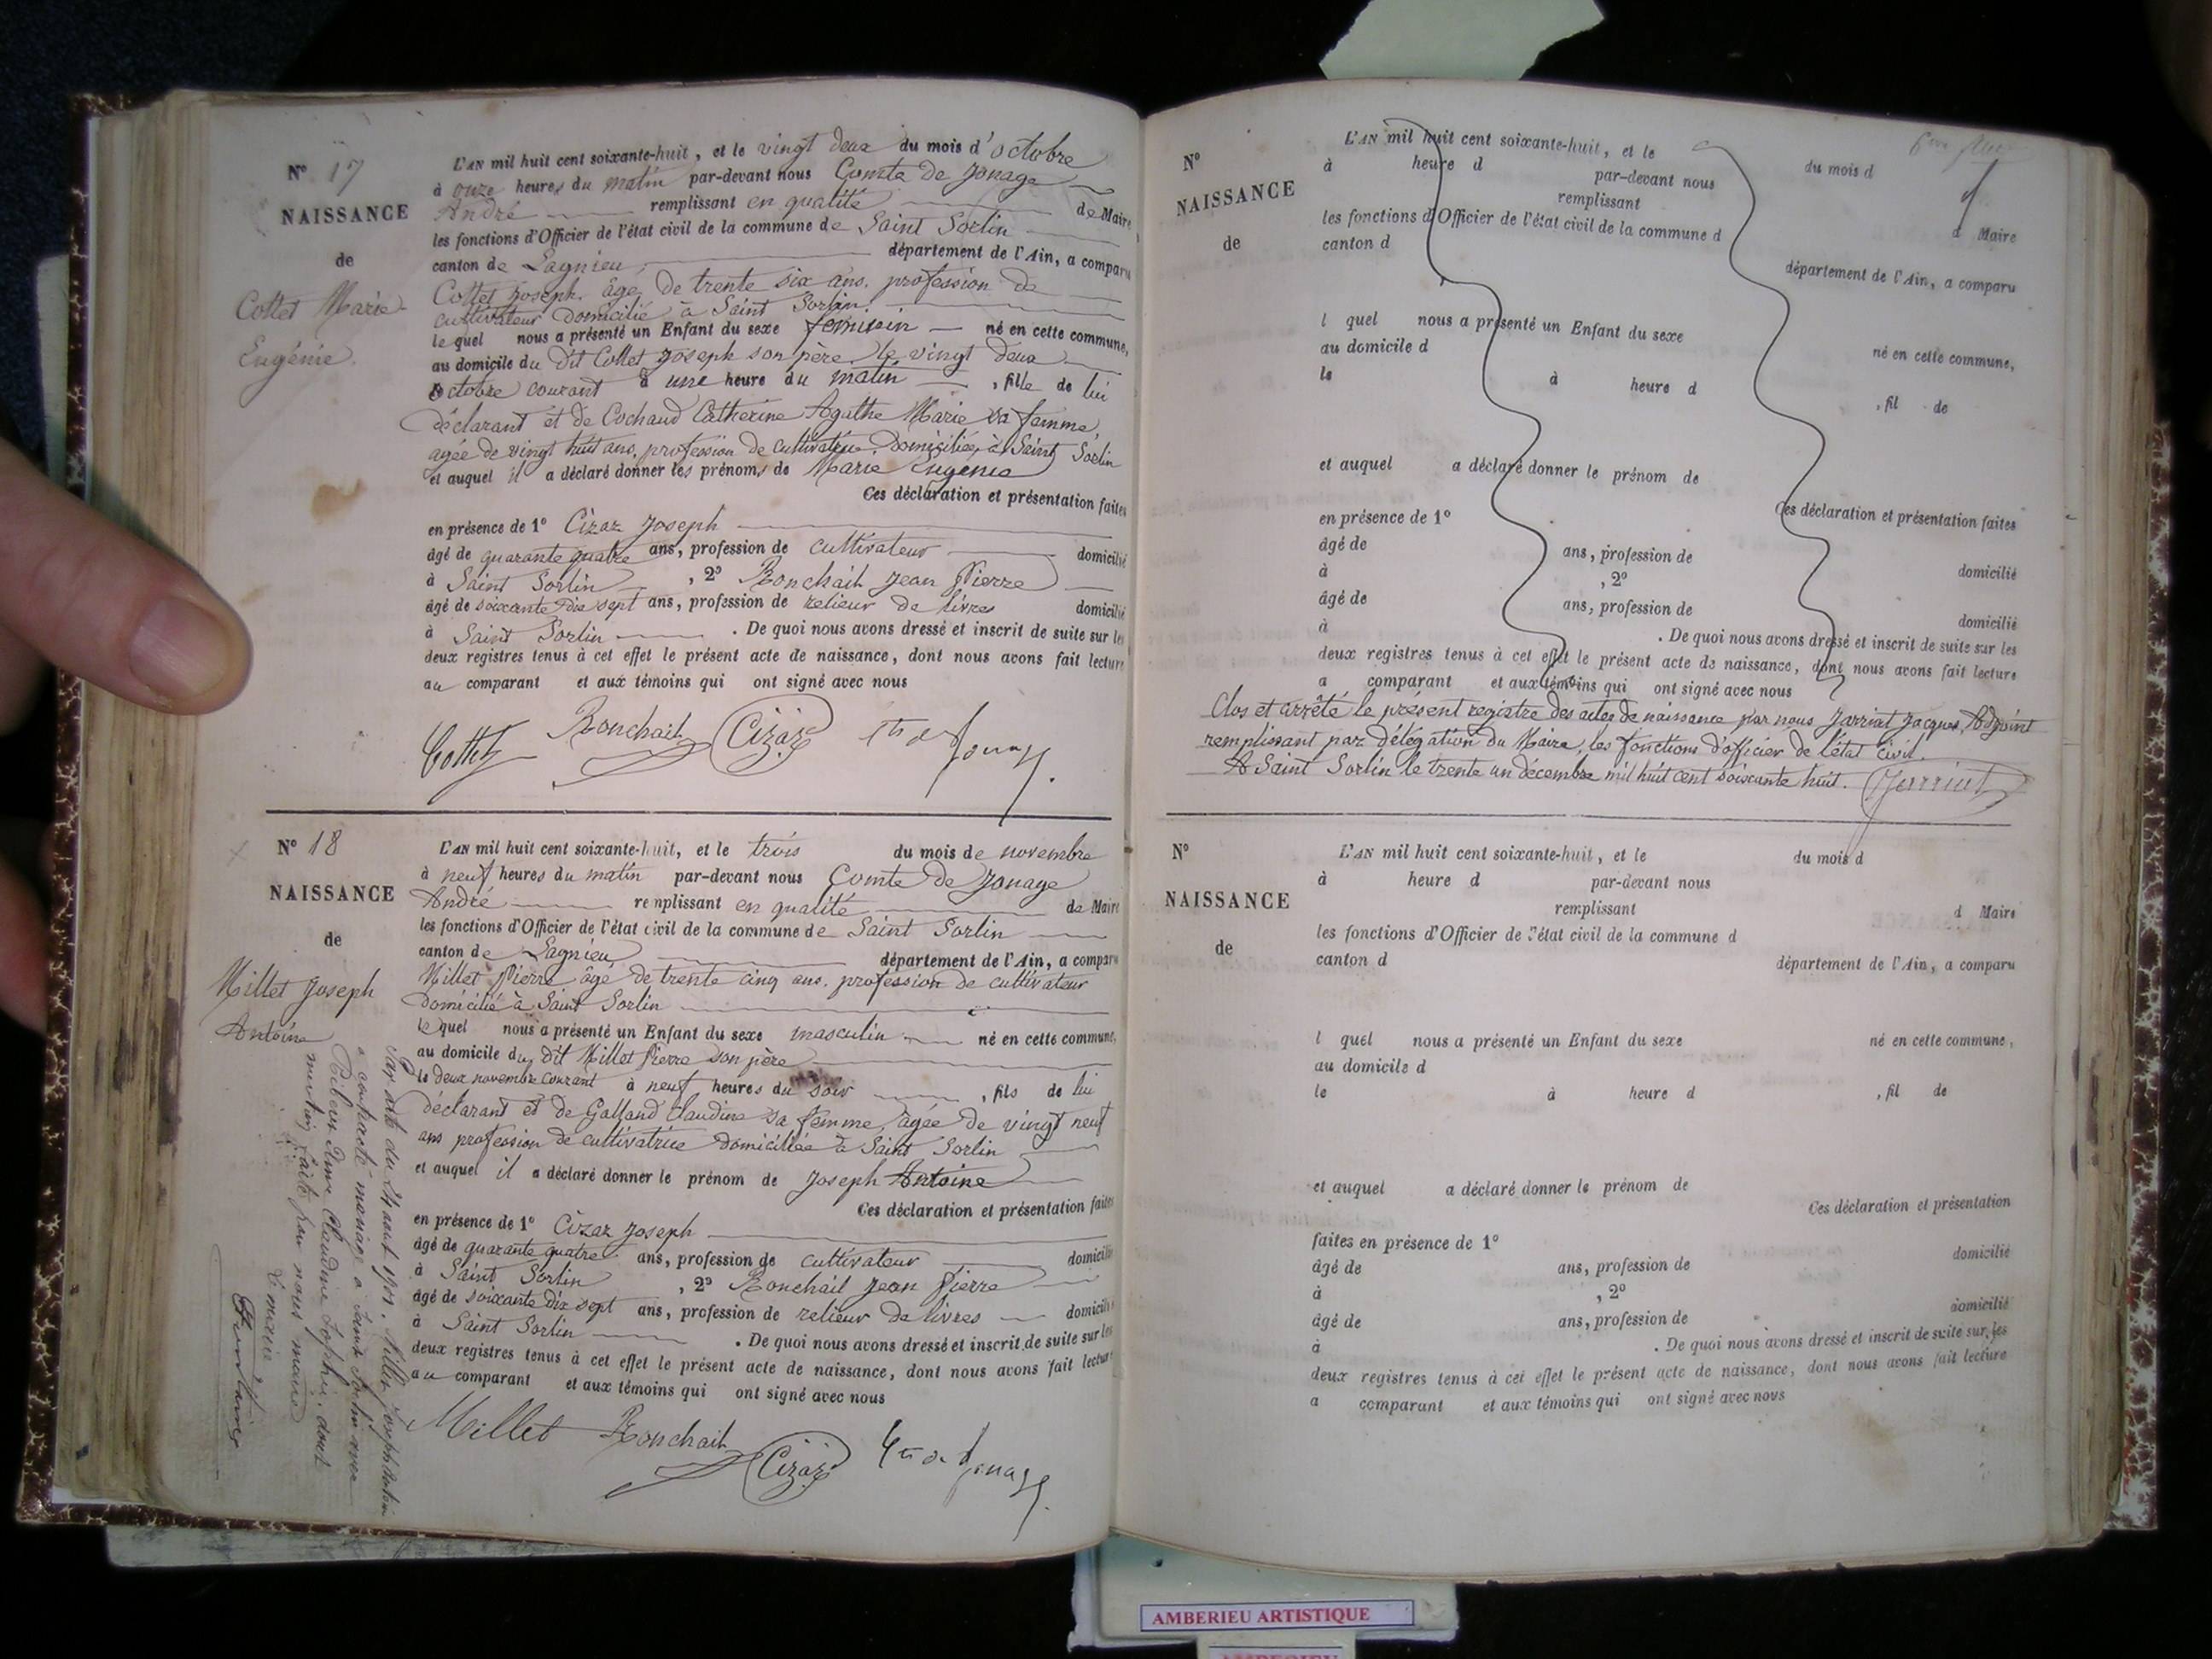 N° 17
NAISSANCE
de
Cottet Marie
Eugénie.
L'AN mil huit cent soixante-huit, et le vingt deux du mois d'octobre
à onze heures du matin par-devant nous Comte de Jonage
André remplissant en qualité de Maire
les fonctions d'Officier de l'état civil de la commune de Saint Sorlin
canton de Lagnieu département de l'Ain, a comparu
Cottet Joseph. âgé de trente six ans. profession de
cultivateur domicilié à Saint Sorlin
lequel nous a présenté un Enfant du sexe féminin né en cette commune,
au domicile du dit Cottet Joseph son père le vingt deux
octobre courant à une heure du matin, fille de lui
déclarant et de Cochaud Catherine Agathe Marie sa femme,
agée de vingt huit ans, profession de cultivatrice domiciliée à Saint Sorlin
et auquel il a déclaré donner les prénoms de Marie Eugénie
Ces déclaration et présentation faites
en présence de 1° Cizaz Joseph
âgé de quarante quatre ans, profession de cultivateur domicilié
à Saint Sorlin, 2° Ronchail Jean Pierre
âgé de soixante dix sept ans, profession de relieur de livres domicilié
à Saint Sorlin. De quoi nous avons dressé et inscrit de suite sur les
deux registres tenus à cet effet le présent acte de naissance, dont nous avons fait lecture
au comparant et aux témoins qui ont signé avec nous
Cottet Ronchail Cizaz Cte de Jonage
N° 18
NAISSANCE
de
Millet Joseph
Antoine
L'AN mil huit cent soixante-huit, et le trois du mois de novembre
à neuf heures du matin par-devant nous Comte de Jonage
André remplissant en qualité de Maire
les fonctions d'Officier de l'état civil de la commune de Saint Sorlin
canton de Lagnieu département de l'Ain, a comparu
Millet Pierre âgé de trente cinq ans. profession de cultivateur
domicilié à Saint Sorlin
lequel nous a présenté un Enfant du sexe masculin né en cette commune,
au domicile du dit Millet Pierre son père
le deux novembre courant à neuf heures du soir, fils de lui
déclarant et de Galland Claudine sa femme, âgée de vingt neuf
ans profession de cultivatrice domiciliée à Saint Sorlin
et auquel il a déclaré donner le prénom de Joseph Antoine
Ces déclaration et présentation faites
en présence de 1° Cizaz Joseph
âgé de quarante quatre ans, profession de cultivateur domicilié
à Saint Sorlin, 2° Ronchail Jean Pierre
âgé de soixante dix sept ans, profession de relieur de livres domicilié
à Saint Sorlin. De quoi nous avons dressé et inscrit de suite sur les
deux registres tenus à cet effet le présent acte de naissance, dont nous avons fait lecture
au comparant et aux témoins qui ont signé avec nous
Millet Ronchail Cizaz Cte de Jonage
Par acte du août Millet Joseph Antoine
a contracté mariage à Saint Sorlin avec
Claudine Sophie, dont
mention faite par nous maire
Le maire
N°
NAISSANCE
de
L'AN mil huit cent soixante-huit, et le du mois d
à heure d par-devant nous
remplissant d Maire
les fonctions d'Officier de l'état civil de la commune d
canton d département de l'Ain, a comparu
l quel nous a présenté un Enfant du sexe né en cette commune,
au domicile d
le à heure d , fil de
et auquel a déclaré donner le prénom de
Ces déclaration et présentation faites
en présence de 1°
âgé de ans, profession de domicilié
à , 2°
âgé de ans, profession de domicilié
à . De quoi nous avons dressé et inscrit de suite sur les
deux registres tenus à cet effet le présent acte de naissance, dont nous avons fait lecture
a comparant et aux témoins qui ont signé avec nous
Clos et arrêté le présent registre des actes de naissance par nous Jarriat Jacques, Adjoint
remplissant par délégation du Maire, les fonctions d'officier de l'état civil.
A Saint Sorlin le trente un décembre mil huit cent soixante huit. Jarriat
N°
NAISSANCE
de
L'AN mil huit cent soixante-huit, et le du mois d
à heure d par-devant nous
remplissant d Maire
les fonctions d'Officier de l'état civil de la commune d
canton d département de l'Ain, a comparu
l quel nous a présenté un Enfant du sexe né en cette commune,
au domicile d
le à heure d , fil de
et auquel a déclaré donner le prénom de
Ces déclaration et présentation
faites en présence de 1° domicilié
âgé de ans, profession de
à , 2° domicilié
âgé de ans, profession de
à . De quoi nous avons dressé et inscrit de suite sur les
deux registres tenus à cet effet le présent acte de naissance, dont nous avons fait lecture
a comparant et aux témoins qui ont signé avec nous
AMBERIEU ARTISTIQUE